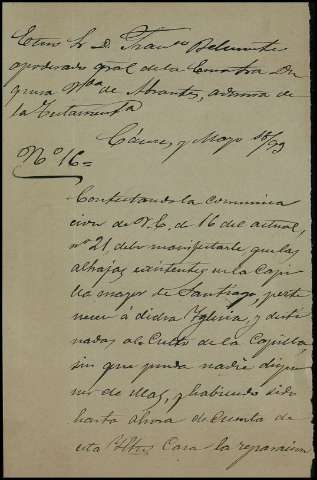 Exmo Sr. D. Franco Belmonte
apoderado gral de la Excma Sra Du
quesa Vda de Abrantes, adsora de
la Testamentª
Cáceres y Mayo 18/93
Nº 16=
Contestando la comunica
cion de V.E. de 16 del actual,
nº 21, debo manifestarle, que las
alhajas existentes en la Capi
lla mayor de Santiago, perte
necen á dicha Yglesia, y desti
nadas al Culto de la Capilla,
sin que pueda nadie dispo
ner de ellas, y habiendo sido
hasta ahora de cuenta de
esta Yltre Casa la reparacion